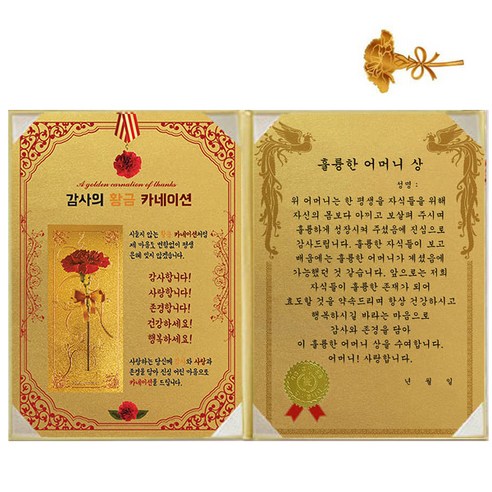 A golden carnation of thanks
감사의 황금 카네이션
시들지 않는 황금 카네이션처럼
제 마음도 변함없이 평생
은혜 잊지 않겠습니다.
감사합니다!
사랑합니다!
존경합니다!
건강하세요!
행복하세요!
사랑하는 당신에 와 사랑과
존경을 담아 진심 어린 마음으로
카네이션을 드립니다.
훌륭한 어머니 상
성명 :
위 어머니는 한 평생을 자식들을 위해
자신의 몸보다 아끼고 보살펴 주시며
훌륭하게 성장시켜 주셨음에 진심으로
감사드립니다. 훌륭한 자식들이 보고
배움에는 훌륭한 어머니가 계셨음에
가능했던 것 같습니다. 앞으로는 저희
자식들이 훌륭한 존재가 되어
효도할 것을 약속드리며 항상 건강하시고
행복하시길 바라는 마음으로
감사와 존경을 담아
이 훌륭한 어머니 상을 수여합니다.
어머니! 사랑합니다.
년 월 일